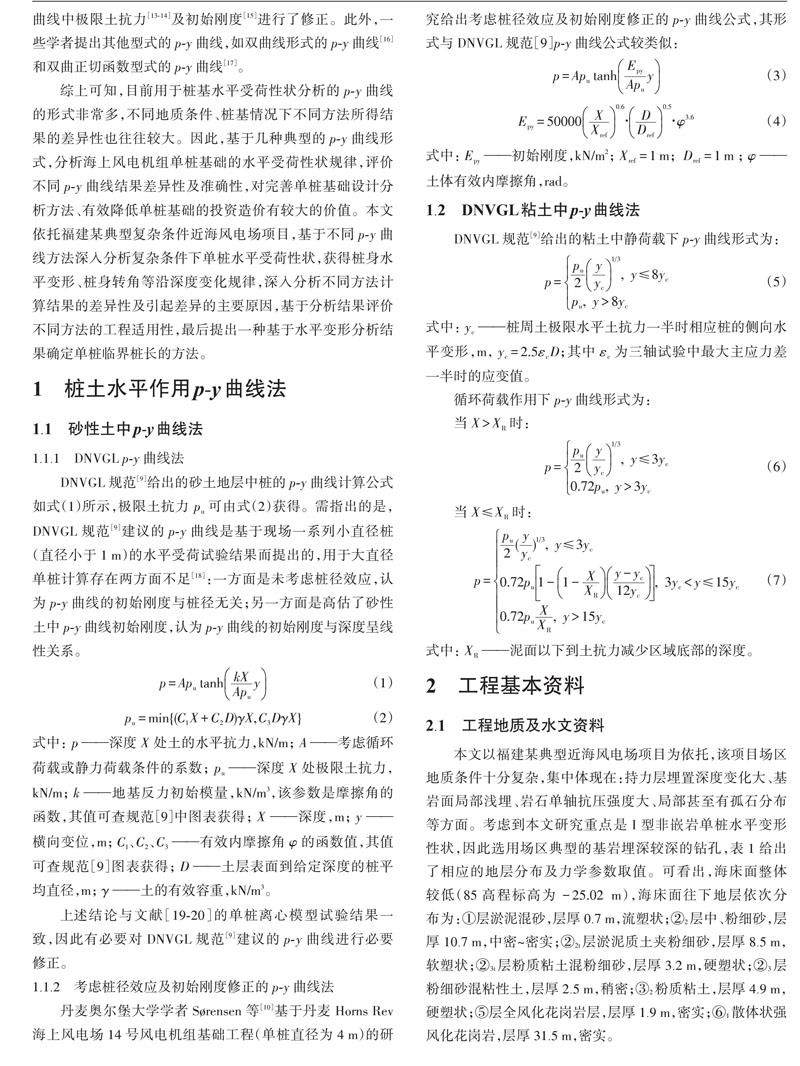 曲线中极限土抗力[13-14]及初始刚度[15]进行了修正。此外,一
些学者提出其他型式的 p-y 曲线,如双曲线形式的 p-y 曲线[16]
和双曲正切函数型式的 p-y 曲线[17]。
综上可知,目前用于桩基水平受荷性状分析的 p-y 曲线
的形式非常多,不同地质条件、桩基情况下不同方法所得结
果的差异性也往往较大。因此,基于几种典型的 p-y 曲线形
式,分析海上风电机组单桩基础的水平受荷性状规律,评价
不同 p-y 曲线结果差异性及准确性,对完善单桩基础设计分
析方法、有效降低单桩基础的投资造价有较大的价值。本文
依托福建某典型复杂条件近海风电场项目,基于不同 p-y 曲
线方法深入分析复杂条件下单桩水平受荷性状,获得桩身水
平变形、桩身转角等沿深度变化规律,深入分析不同方法计
算结果的差异性及引起差异的主要原因,基于分析结果评价
不同方法的工程适用性,最后提出一种基于水平变形分析结
果确定单桩临界桩长的方法。
1 桩土水平作用 p-y 曲线法
1.1 砂性土中 p-y 曲线法
1.1.1 DNVGL p-y 曲线法
DNVGL 规范[9]给出的砂土地层中桩的 p-y 曲线计算公式
如式(1)所示,极限土抗力 pu 可由式(2)获得。需指出的是,
DNVGL 规范[9]建议的 p-y 曲线是基于现场一系列小直径桩
(直径小于 1 m)的水平受荷试验结果而提出的,用于大直径
单桩计算存在两方面不足[18]:一方面是未考虑桩径效应,认
为 p-y 曲线的初始刚度与桩径无关;另一方面是高估了砂性
土中 p-y 曲线初始刚度,认为 p-y 曲线的初始刚度与深度呈线
性关系。
p = Apu tanh(kX/Apu y) (1)
pu = min{(C1X + C2D)γX, C3DγX} (2)
式中: p ——深度 X 处土的水平抗力,kN/m; A ——考虑循环
荷载或静力荷载条件的系数; pu ——深度 X 处极限土抗力,
kN/m; k ——地基反力初始模量,kN/m3,该参数是摩擦角的
函数,其值可查规范[9]中图表获得; X ——深度,m; y ——
横向变位,m; C1、C2、C3 ——有效内摩擦角 φ 的函数值,其值
可查规范[9]图表获得; D ——土层表面到给定深度的桩平
均直径,m; γ ——土的有效容重,kN/m3。
上述结论与文献[19-20]的单桩离心模型试验结果一
致,因此有必要对 DNVGL 规范[9]建议的 p-y 曲线进行必要
修正。
1.1.2 考虑桩径效应及初始刚度修正的 p-y 曲线法
丹麦奥尔堡大学学者 Sørensen 等[10]基于丹麦 Horns Rev
海上风电场 14 号风电机组基础工程(单桩直径为 4 m)的研
究给出考虑桩径效应及初始刚度修正的 p-y 曲线公式,其形
式与 DNVGL 规范[9]p-y 曲线公式较类似:
p = Apu tanh(Epy/Apu y) (3)
Epy = 50000(X/Xref)^0.6·(D/Dref)^0.5·φ^3.6 (4)
式中: Epy ——初始刚度,kN/m2; Xref = 1 m; Dref = 1 m ; φ ——
土体有效内摩擦角,rad。
1.2 DNVGL粘土中 p-y 曲线法
DNVGL 规范[9]给出的粘土中静荷载下 p-y 曲线形式为:
p = { pu/2 (y/yc)^1/3, y≤8yc (5)
pu, y>8yc
式中: yc ——桩周土极限水平土抗力一半时相应桩的侧向水
平变形,m, yc = 2.5εcD;其中 εc 为三轴试验中最大主应力差
一半时的应变值。
循环荷载作用下 p-y 曲线形式为:
当 X > XR 时:
p = { pu/2 (y/yc)^1/3, y≤3yc (6)
0.72pu, y>3yc
当 X≤XR 时:
p = { pu/2 (y/yc)^1/3, y≤3yc
0.72pu[1-(1-X/XR)((y-yc)/12yc)], 3yc<y≤15yc (7)
0.72pu X/XR, y>15yc
式中: XR ——泥面以下到土抗力减少区域底部的深度。
2 工程基本资料
2.1 工程地质及水文资料
本文以福建某典型近海风电场项目为依托,该项目场区
地质条件十分复杂,集中体现在:持力层埋置深度变化大、基
岩面局部浅埋、岩石单轴抗压强度大、局部甚至有孤石分布
等方面。考虑到本文研究重点是Ⅰ型非嵌岩单桩水平变形
性状,因此选用场区典型的基岩埋深较深的钻孔,表 1 给出
了相应的地层分布及力学参数取值。可看出,海床面整体
较低(85 高程标高为 -25.02 m),海床面往下地层依次分
布为:①层淤泥混砂,层厚 0.7 m,流塑状;②2层中、粉细砂,层
厚 10.7 m,中密~密实;②2t层淤泥质土夹粉细砂,层厚 8.5 m,
软塑状;②3t层粉质粘土混粉细砂,层厚 3.2 m,硬塑状;②3层
粉细砂混粘性土,层厚 2.5 m,稍密;③2粉质粘土,层厚 4.9 m,
硬塑状;⑤层全风化花岗岩层,层厚 1.9 m,密实;⑥1散体状强
风化花岗岩,层厚 31.5 m,密实。